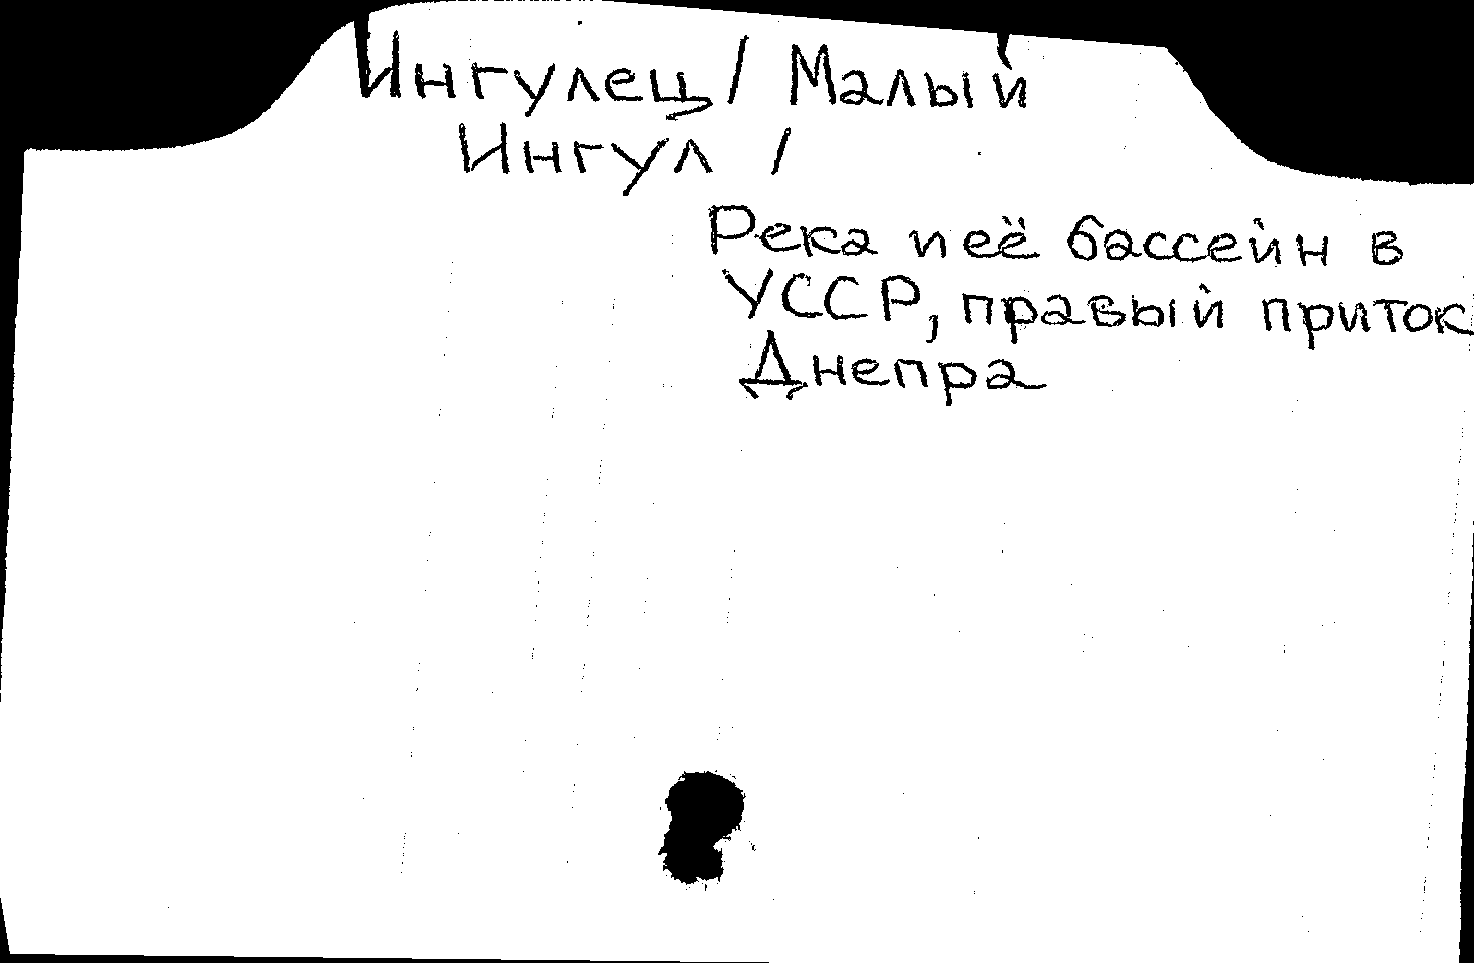 Ингулец / Малый
Ингул /
Река и её бассейн в
УССР, правый приток
Днепра